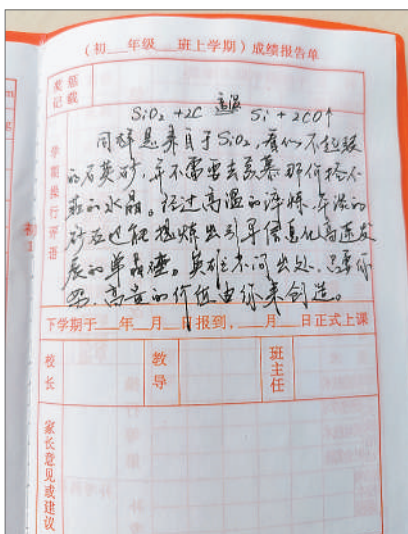 (初__年级__班上学期)成绩报告单
奖惩记载
SiO₂ +2C 高温 Si + 2CO↑
学期操行评语
同样是来自于SiO₂,看似不起眼
的石英砂,并不需要去羡慕那价格不
菲的水晶。经过高温的淬炼,普通的
砂石也能提炼出引导信息化高速发
展的单晶硅。英雄不问出处,只要你
愿,高贵的价值由你来创造。
下学期于__年__月__日报到,__月__日正式上课
校长
教导
班主任
家长意见或建议